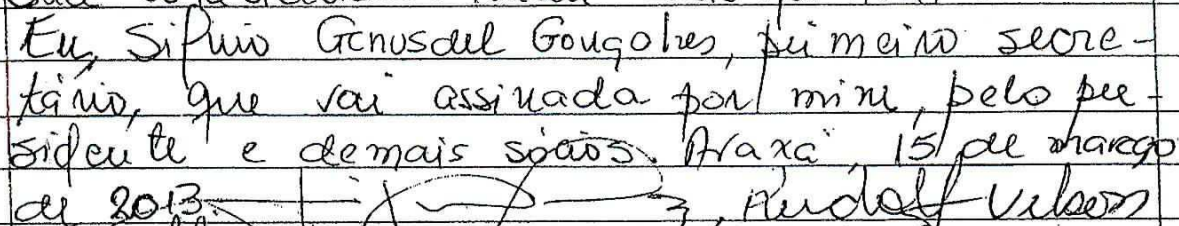 Eu, Silvio Genusdel Gonçolves, primeiro secre-
tário, que vai assinada por mim, pelo pre-
sidente e demais sócios. Araxá, 15 de março
de 2013.